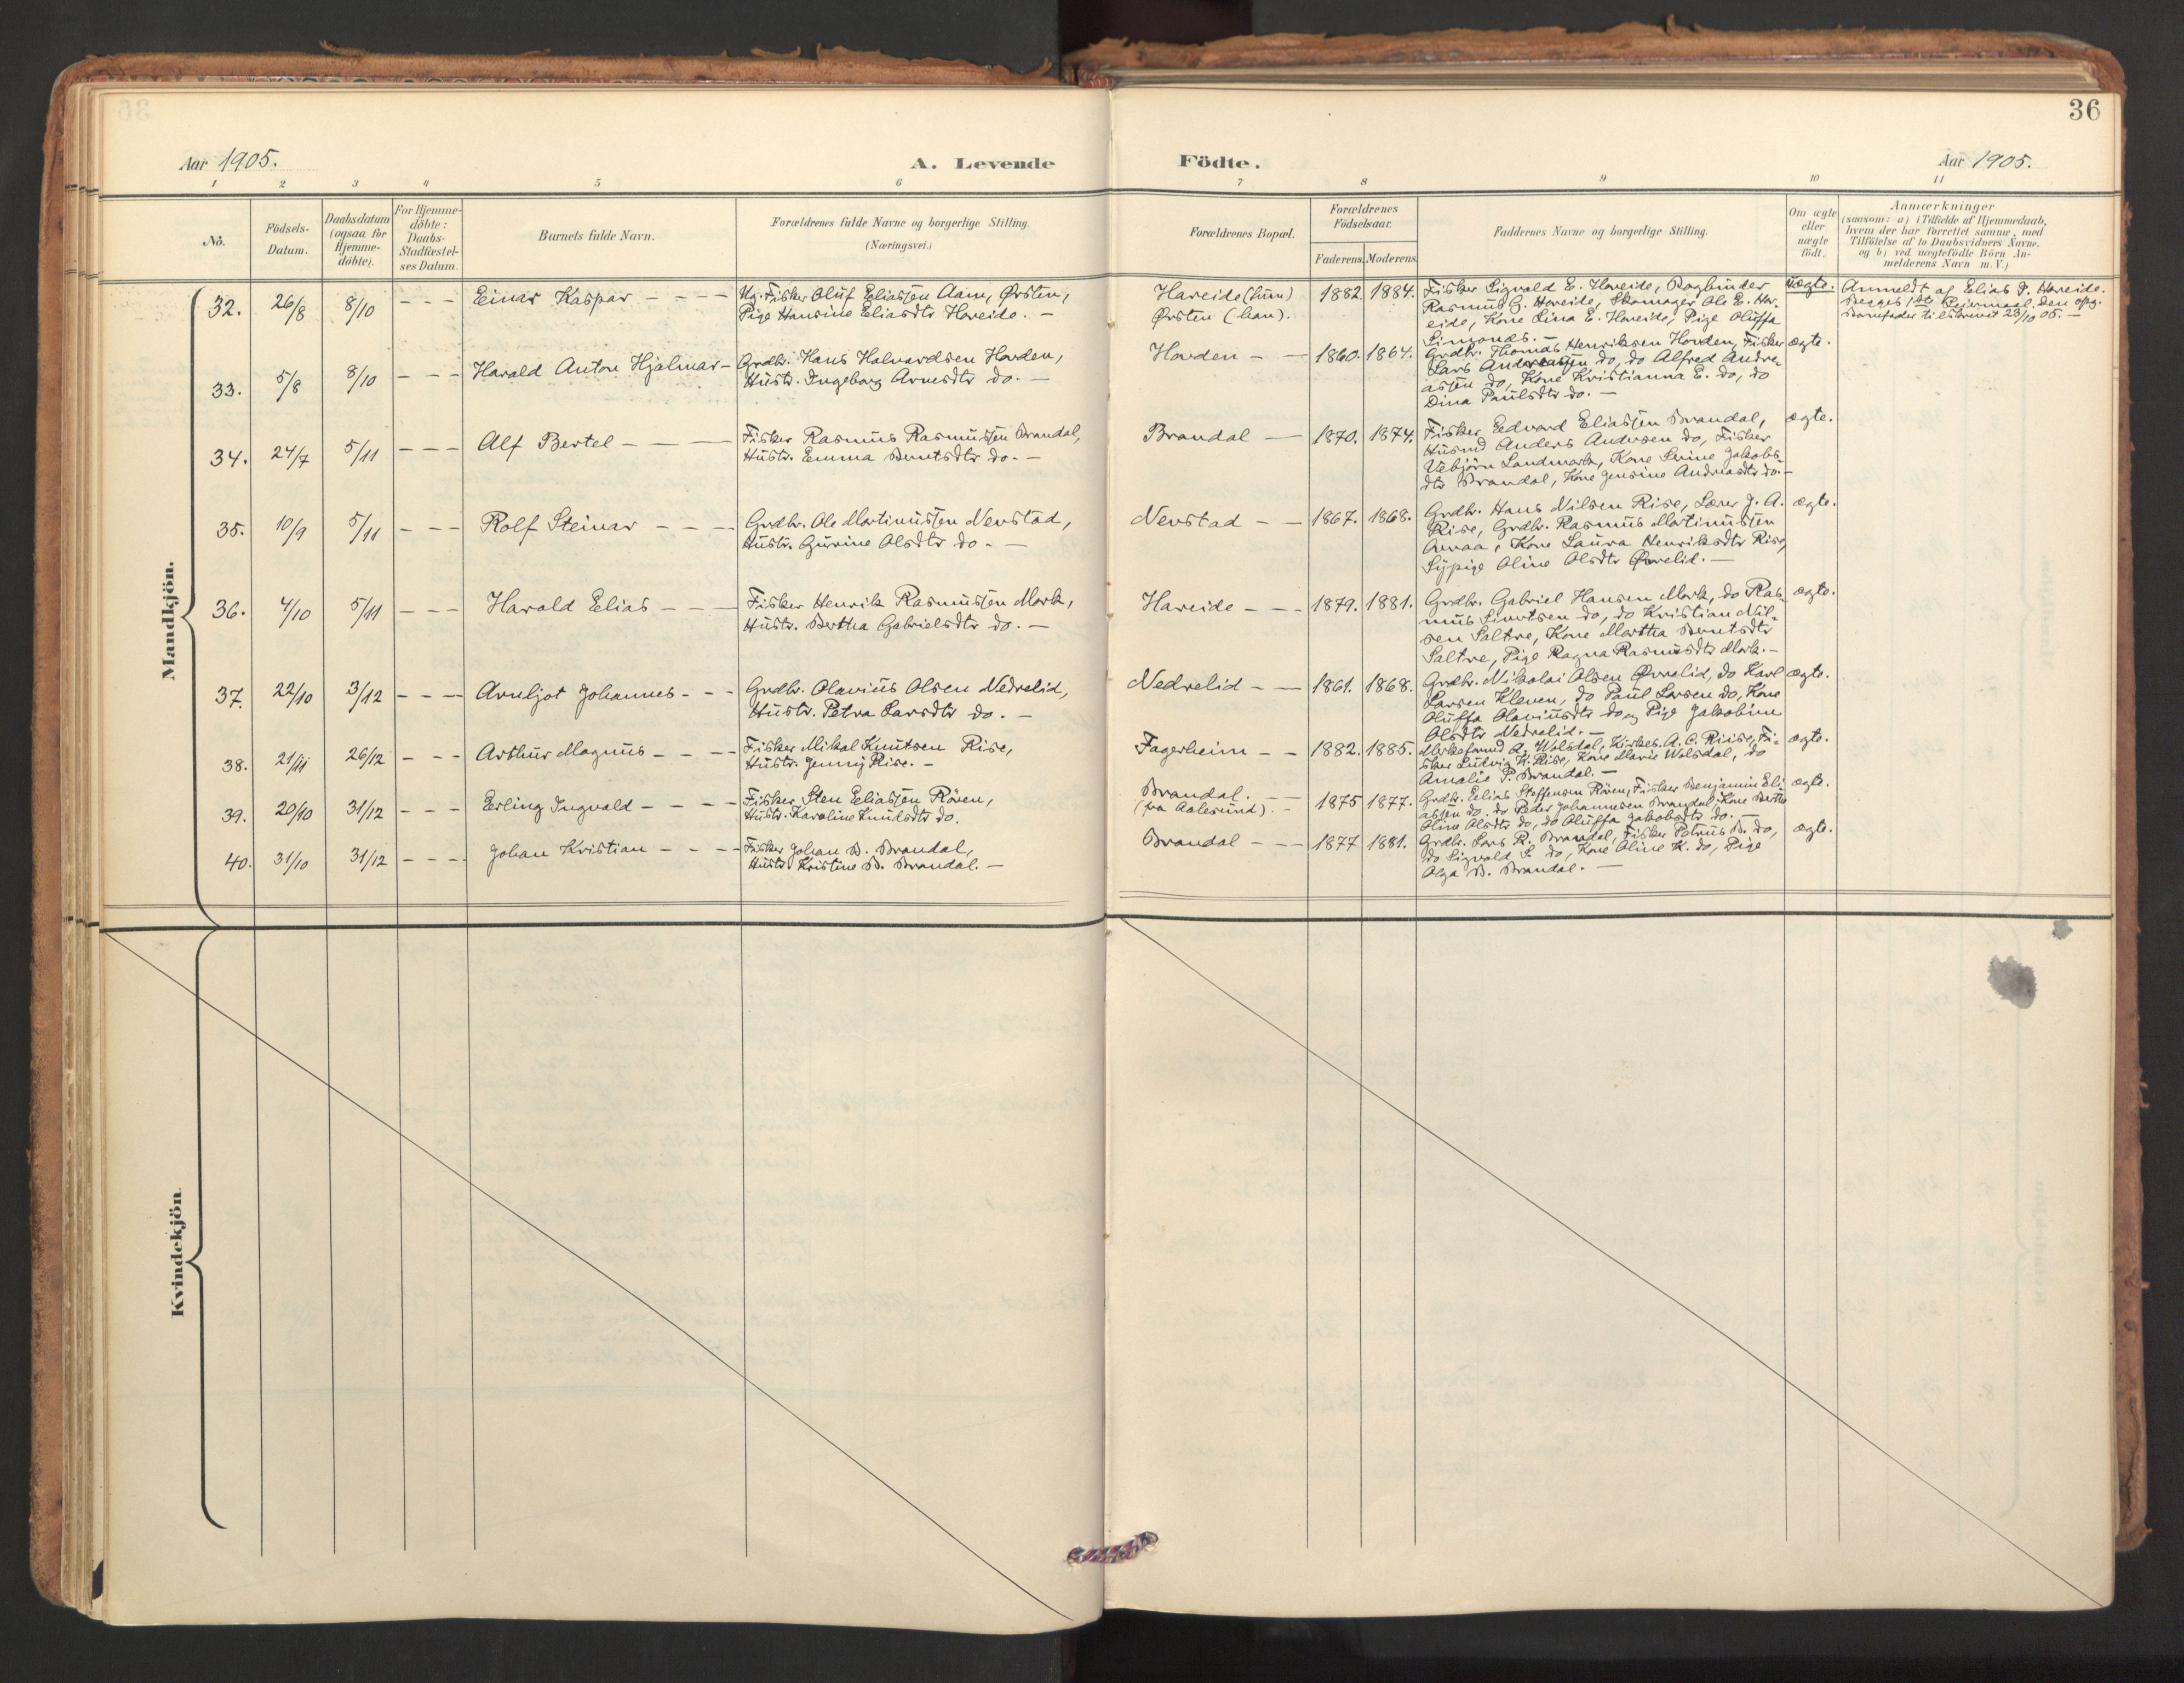 36
Aar 1905.
A. Levende
Födte.
Aar 1905.
1 2 3 4 5 6 7 8 9 10 11
No.
Födsels-Datum.
Daabsdatum (ogsaa for Hjemme-döbte).
For Hjemme-döbte: Daabs-Stadfæstel-ses Datum.
Barnets fulde Navn.
Forældrenes fulde Navne og borgerlige Stilling.
(Næringsvei.)
Forældrenes Bopæl.
Forældrenes Födselsaar.
Faderens. Moderens.
Faddernes Navne og borgerlige Stilling.
Om ægte eller uægte födt.
Anmærkninger
(saasom: a) i Tilfælde af Hjemmedaab,
hvem der har forrettet samme, med
Tilföielse af to Daabsvidners Navne.
og b) ved uægtefödte Börn An-
melderens Navn m. V.)
Mandkjön.
32. 26/8 8/10 - - - Einar Kaspar - - - -
Ug. Fisker Oluf Eliassen Aam, Ørsten,
Pige Hansine Eliasdtr Hareide. -
Hareide (hun)
Ørsten (han).
1882. 1884.
Fisker Sigvald E. Hareide, Bogbinder
Rasmus G. Hareide, Skomager Ole E. Har-
eide, Kone Lina E. Hareide, Pige Oluffa
Simonds. -
Uægte.
Anmeldt af Elias P. Hareide.
Begges 1ste Leiermaal. Den opg.
Barnefader tilskrevet 23/10 05. -
33. 5/8 8/10 - - - Harald Anton Hjalmar -
Grdbr. Hans Halvardsen Hovden,
Hustr. Ingeborg Arnesdtr do. -
Hovden - -
1860. 1864.
Grdbr. Thomas Henriksen Hovden, Fisker
Lars Andreassen do, do Alfred Andre-
assen do, Kone Kristianna E. do, do
Dina Paulsdtr do. -
ægte.
34. 24/7 5/11 - - - Alf Bertel - - -
Fisker Rasmus Rasmussen Brandal,
Hustr. Emma Berntsdtr do. -
Brandal -
1870. 1874.
Fisker Edvard Eliassen Brandal,
Husmd Anders Andersen do, Fisker
Vebjörn Landmark, Kone Severine Jakobs-
dtr Brandal, Kone Jensine Andreasdtr do. -
ægte.
35. 10/9 5/11 - - - Rolf Steinar - - -
Grdbr. Ole Martinussen Nevstad,
Hustr. Gurine Olsdtr do. -
Nevstad - -
1867. 1868.
Grdbr. Hans Nilsen Rise, Lærer J. A.
Rise, Grdbr. Rasmus Martinussen
Aaraa, Kone Laura Henriksdtr Rise,
Sypige Oline Olsdtr Øvrelid. -
ægte.
36. 4/10 5/11 - - - Harald Elias - - -
Fisker Henrik Rasmussen Mork,
Hustr. Bertha Gabrielsdtr do. -
Hareide - - -
1879. 1881.
Grdbr. Gabriel Hansen Mork, do Ras-
mus Sivertsen do, do Kristian Nil-
sen Saltre, Kone Martha Berntsdtr
Saltre, Pige Ragna Rasmusdtr Mork. -
ægte.
37. 22/10 3/12 - - - Arnljot Johannes - - -
Grdbr. Olavius Olsen Nedrelid,
Hustr. Petra Larsdtr do. -
Nedrelid - -
1861. 1868.
Grdbr. Nikolai Olsen Øvrelid, do Karl
Larsen Kleven, do Paul Larsen do, Kone
Oluffa Olaviusdtr do og Pige Jakobine
Olsdtr Nedrelid. -
ægte.
38. 21/11 26/12 - - - Arthur Magnus - - - -
Fisker Mikal Knutsen Rise,
Hustr. Jenny Rise. -
Fagerheim - -
1882. 1885.
A. Wolsdal, Kirkes. A. C. Riise, Fi-
sker Ludvig K. Rise, Kone Marie Wolsdal, do
Amalie P. Brandal. -
ægte.
39. 20/10 31/12 - - - Erling Ingvald - - - -
Fisker Sten Eliassen Röven,
Hustr. Karoline Knudsdtr do.
Brandal. - -
(fra Aalesund). -
1875 1877.
Grdbr. Elias Steffensen Röven, Fisker Benjamin Eli-
assen do, do Peder Johannesen Brandal, Kone Berthe
Oline Olsdtr do, do Oluffa Jakobsdtr do. -
ægte.
40. 31/10 31/12 - - - Johan Kristian - - - -
Fisker Johan B. Brandal,
Hustr Kristine B. Brandal. -
Brandal - - -
1877 1881.
Grdbr. Lars R. Brandal, Fisker Petrus B. do,
do Sigvald S. do, Kone Oline K. do, Pige
Olga B. Brandal. -
ægte.
Kvindekjön.